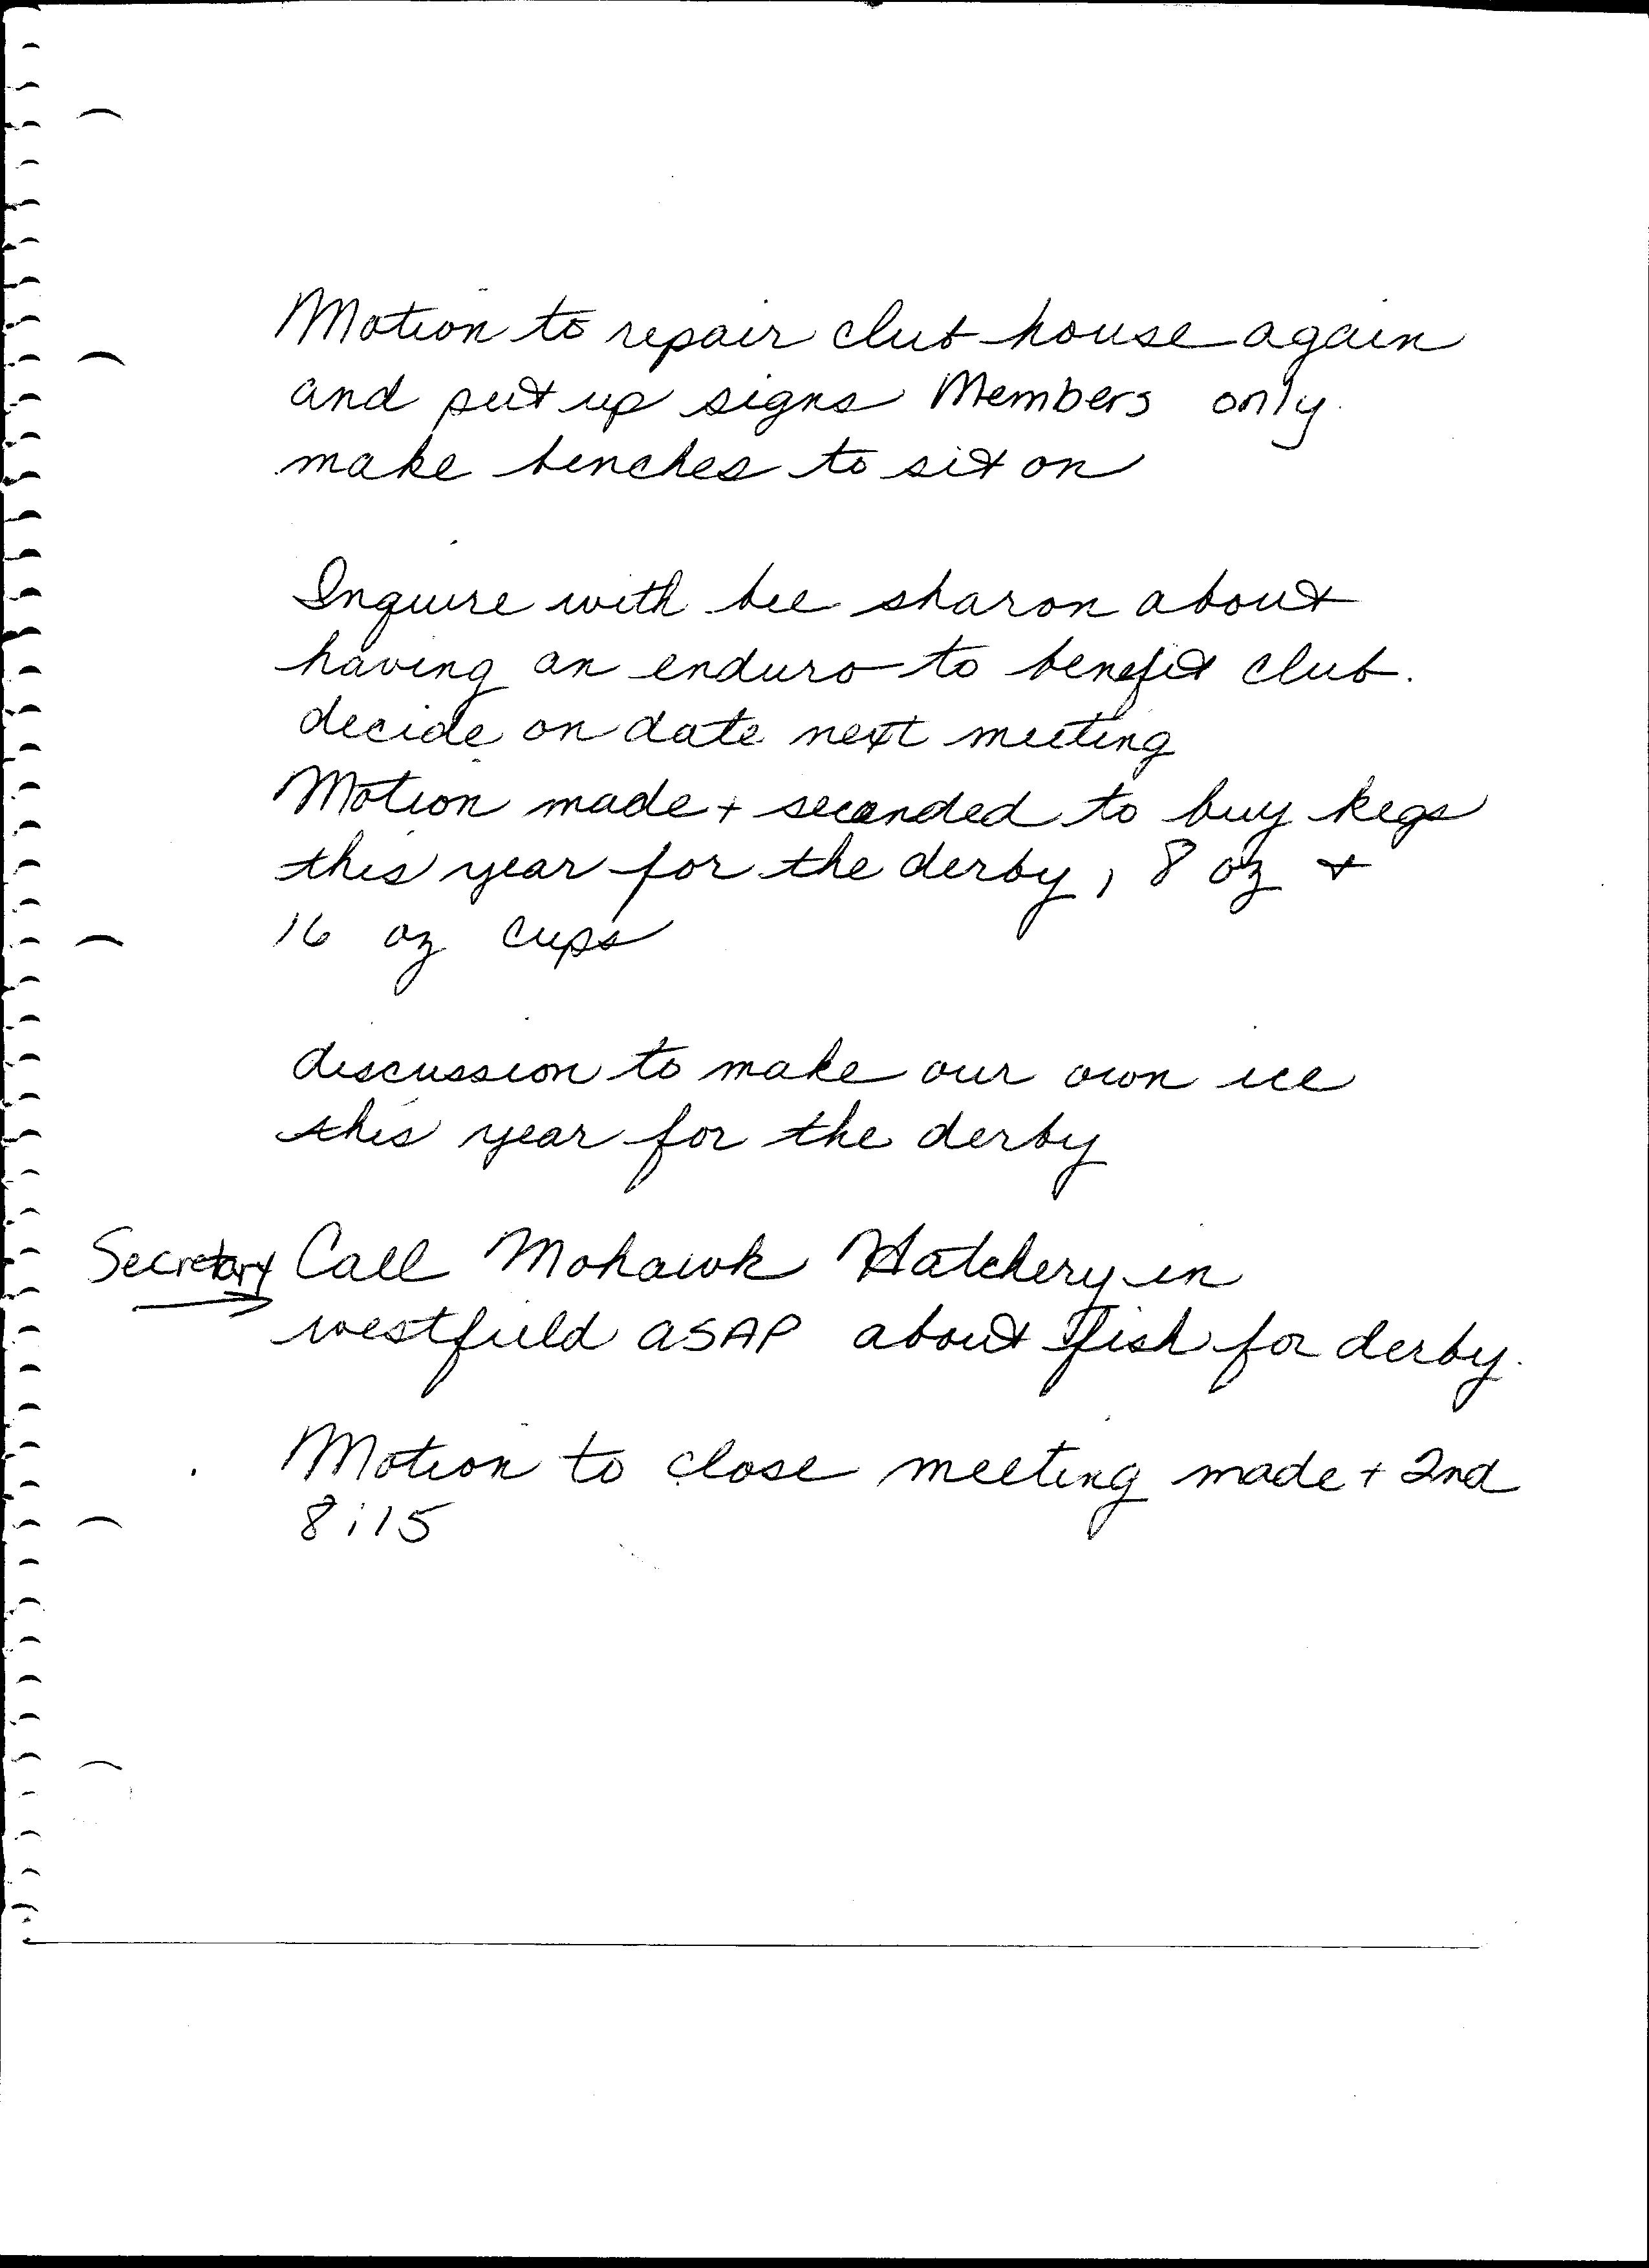 Motion to repair club house again
and put up signs Members only.
make benches to sit on
Inquire with bee sharon about
having an enduro to benefit club.
decide on date next meeting
Motion made + seconded to buy kegs
this year for the derby, 8 oz +
16 oz cups
discussion to make our own ice
this year for the derby
Secretary Call Mohawk Hatchery in
westfield ASAP about fish for derby.
Motion to close meeting made + 2nd
8:15